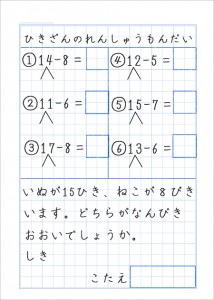 ひきざんのれんしゅうもんだい
①14-8= ④12-5=
②11-6= ⑤15-7=
③17-8= ⑥13-6=
いぬが15ひき、ねこが8ぴき
います。どちらがなんびき
おおいでしょうか。
しき
こたえ